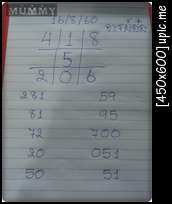 MUMMY
16/8/60
4 1 8
5
2 0 6
281 59
81 95
72 700
20 051
50 51
[450x600] uplc.me